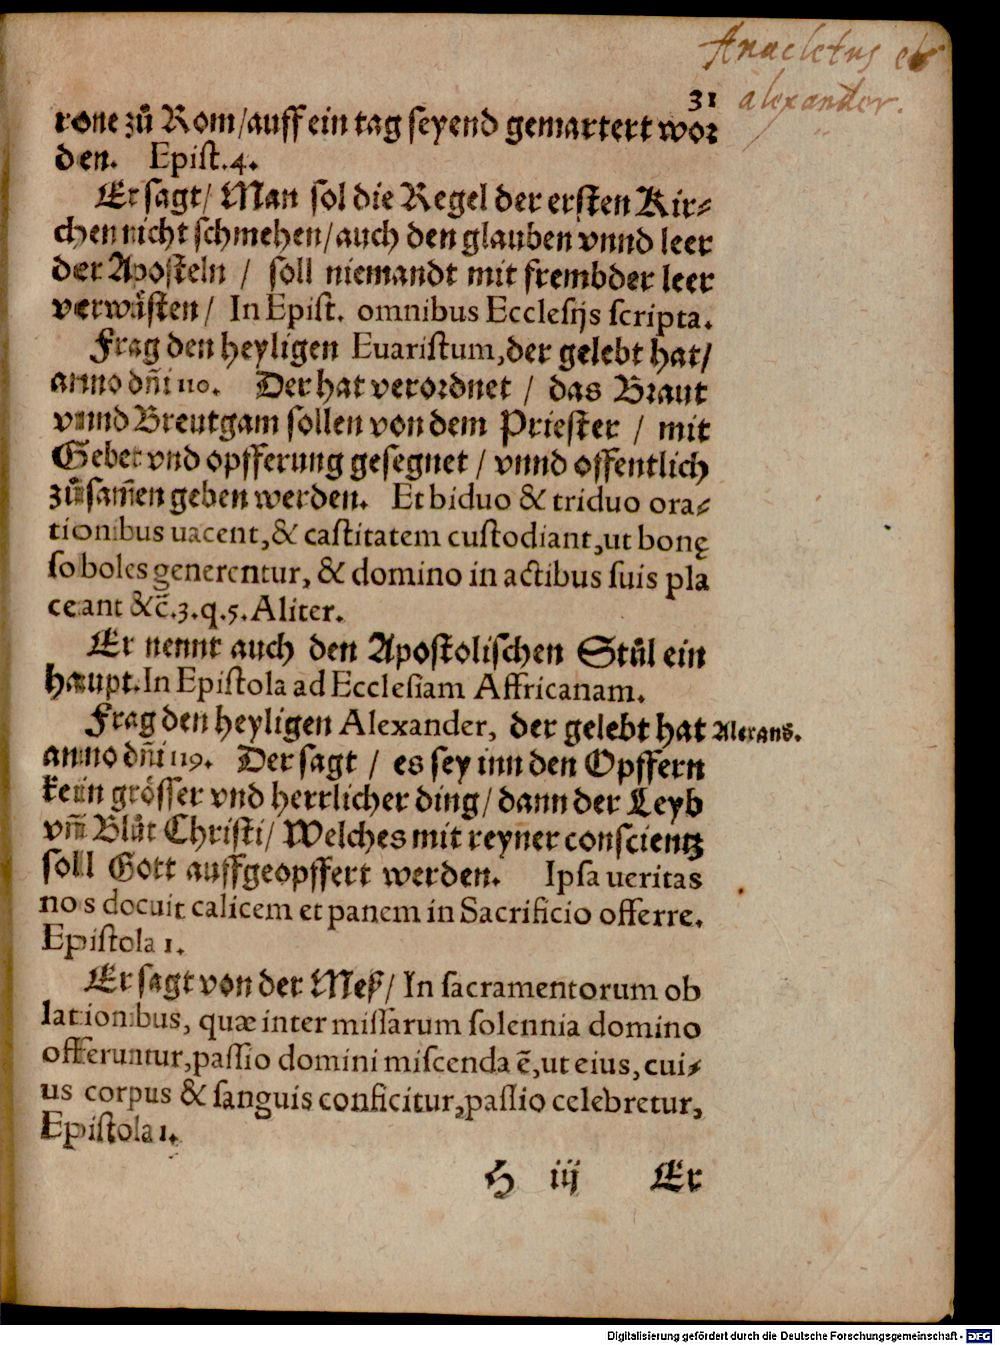 Anacletus et
alexander.
31
rone zů Rom/auff ein tag seyend gemartert wor
den. Epist.4.
Er sagt/ Man sol die Regel der ersten Kir⸗
chen nicht schmehen/auch den glauben vnnd leer
der Aposteln / soll niemandt mit frembder leer
verwüsten/ In Epist. omnibus Ecclesijs scripta.
Frag den heyligen Euaristum,der gelebt hat/
anno dñi 110. Der hat verordnet / das Braut
vnnd Breutgam sollen von dem Priester / mit
Gebet vnd opfferung gesegnet / vnnd offentlich
zůsam̃en geben werden. Et biduo & triduo ora⸗
tionibus uacent,& castitatem custodiant,ut bonę
soboles generentur, & domino in actibus suis pla
ceant &c̃.3.q.5.Aliter.
Er nennt auch den Apostolischen Stůl ein
haupt.In Epistola ad Ecclesiam Affricanam.
Frag den heyligen Alexander, der gelebt hat Alexand.
anno dñi 119. Der sagt / es sey inn den Opffern
kein grösser vnd herrlicher ding/dann der Leyb
vn̄ Blůt Christi/ Welches mit reyner conscientz
soll Gott auffgeopffert werden. Ipsa ueritas
nos docuit calicem et panem in Sacrificio offerre.
Epistola 1.
Er sagt von der Meß/ In sacramentorum ob
lationibus, quæ inter missarum solennia domino
offeruntur,passio domini miscenda ē,ut eius, cui⸗
us corpus & sanguis conficitur,passio celebretur,
Epistola 1.
H iij Er
Digitalisierung gefördert durch die Deutsche Forschungsgemeinschaft - DFG